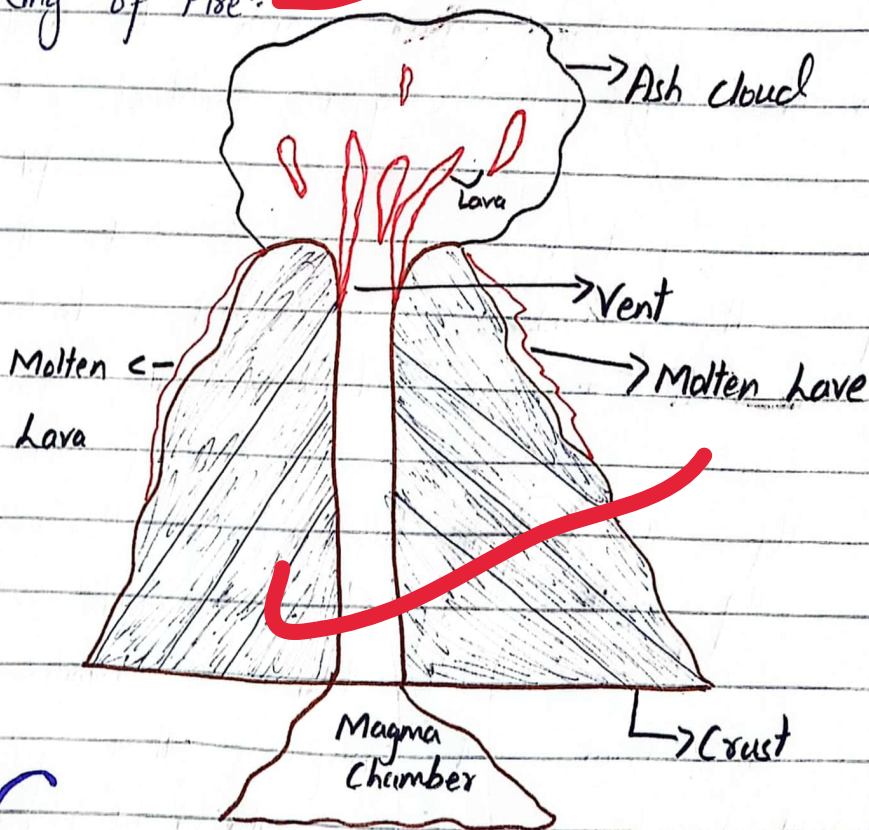 of Fire
Ash cloud
Lava
Vent
Molten
Lava
Molten Lave
Magma
Chamber
Crust